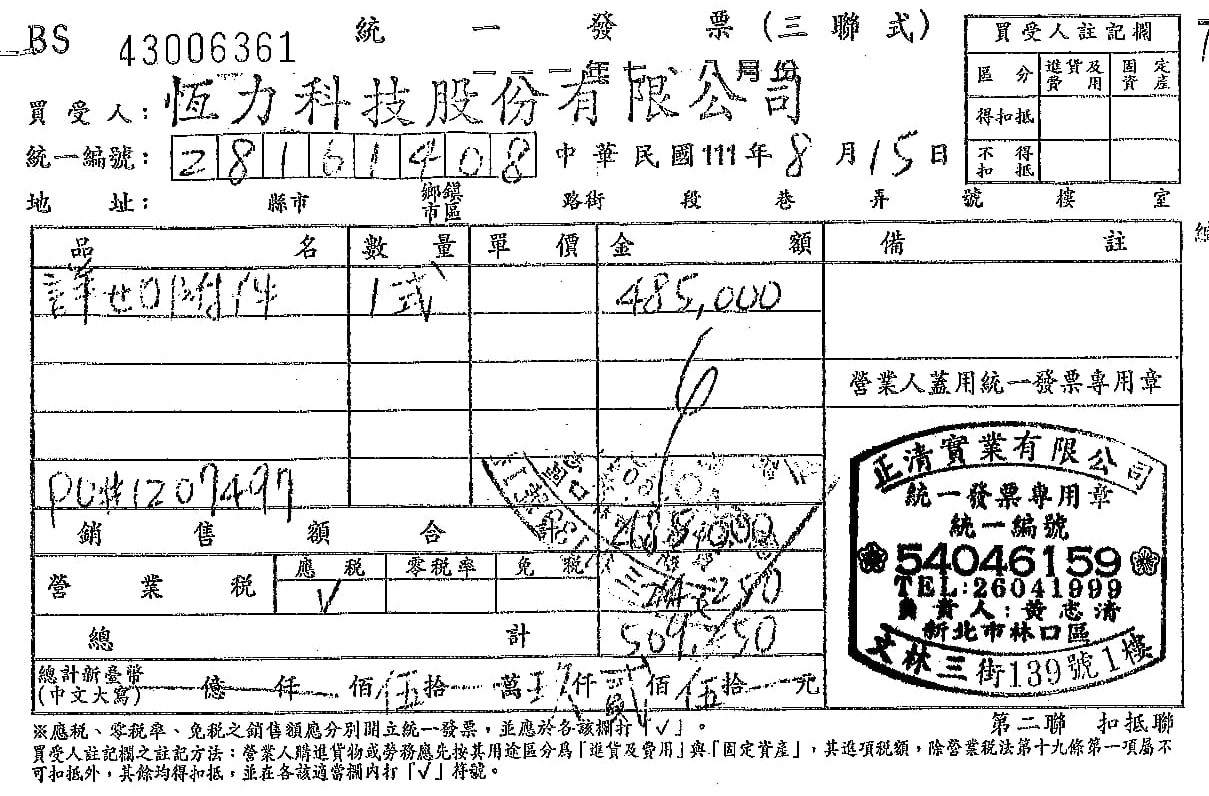 統一發票(三聯式)
BS 43006361
年 八月份
買受人:恆力科技股份有限公司
統一編號:28161408 中華民國111年8月15日
地址: 縣市 鄉鎮市區 路街 段 巷 弄 號 樓 室
買受人註記欄
區分 進貨及費用 固定資產
得扣抵
不得扣抵
品名 數量 單價 金額 備註
附件 1式 485,000
營業人蓋用統一發票專用章
PO#1207497
銷售額合計 485,000
營業稅 應稅 零稅率 免稅
√ 24,250
總計 509,250
總計新臺幣
(中文大寫) 億 仟 佰 伍拾 萬 仟 貳佰 伍拾 元
正清實業有限公司
統一發票專用章
統一編號
54046159
TEL:26041999
負責人:黃志清
新北市林口區
文林三街139號1樓
第二聯 扣抵聯
※應稅、零稅率、免稅之銷售額應分別開立統一發票,並應於各該欄打「√」。
買受人註記欄之註記方法:營業人購進貨物或勞務應先按其用途區分為「進貨及費用」與「固定資產」,其進項稅額,除營業稅法第十九條第一項屬不
可扣抵外,其餘均得扣抵,並在各該適當欄內打「√」符號。